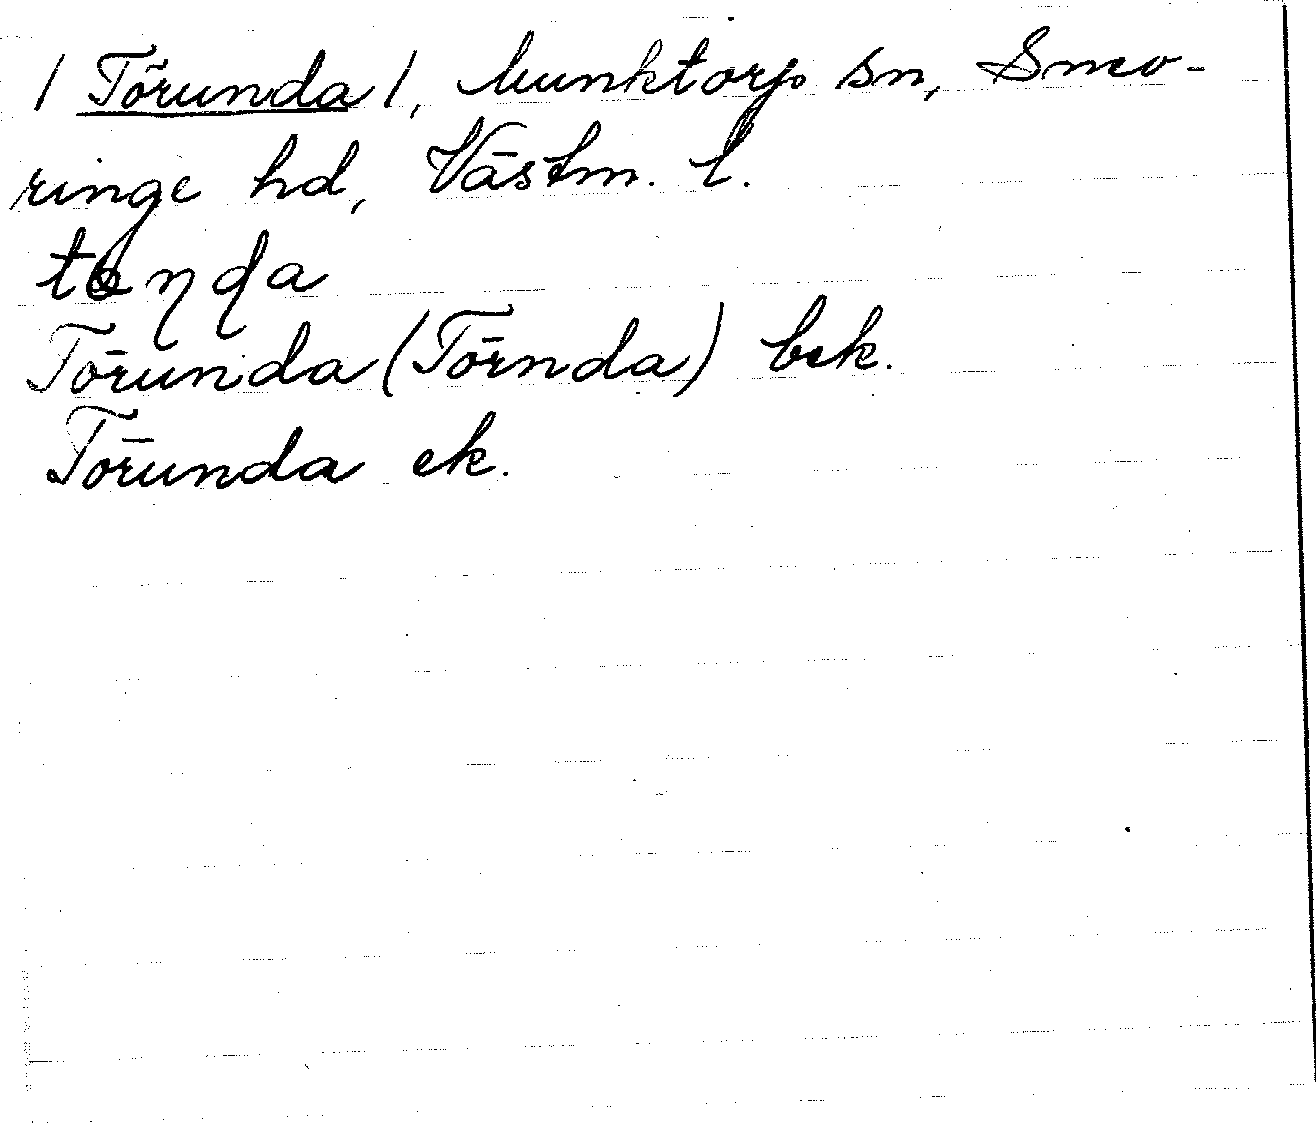 / Törunda /, Munktorp sn, Snev-
ringe hd, Västm. l.
Törunda (Törnda) bek.
Törunda ek.